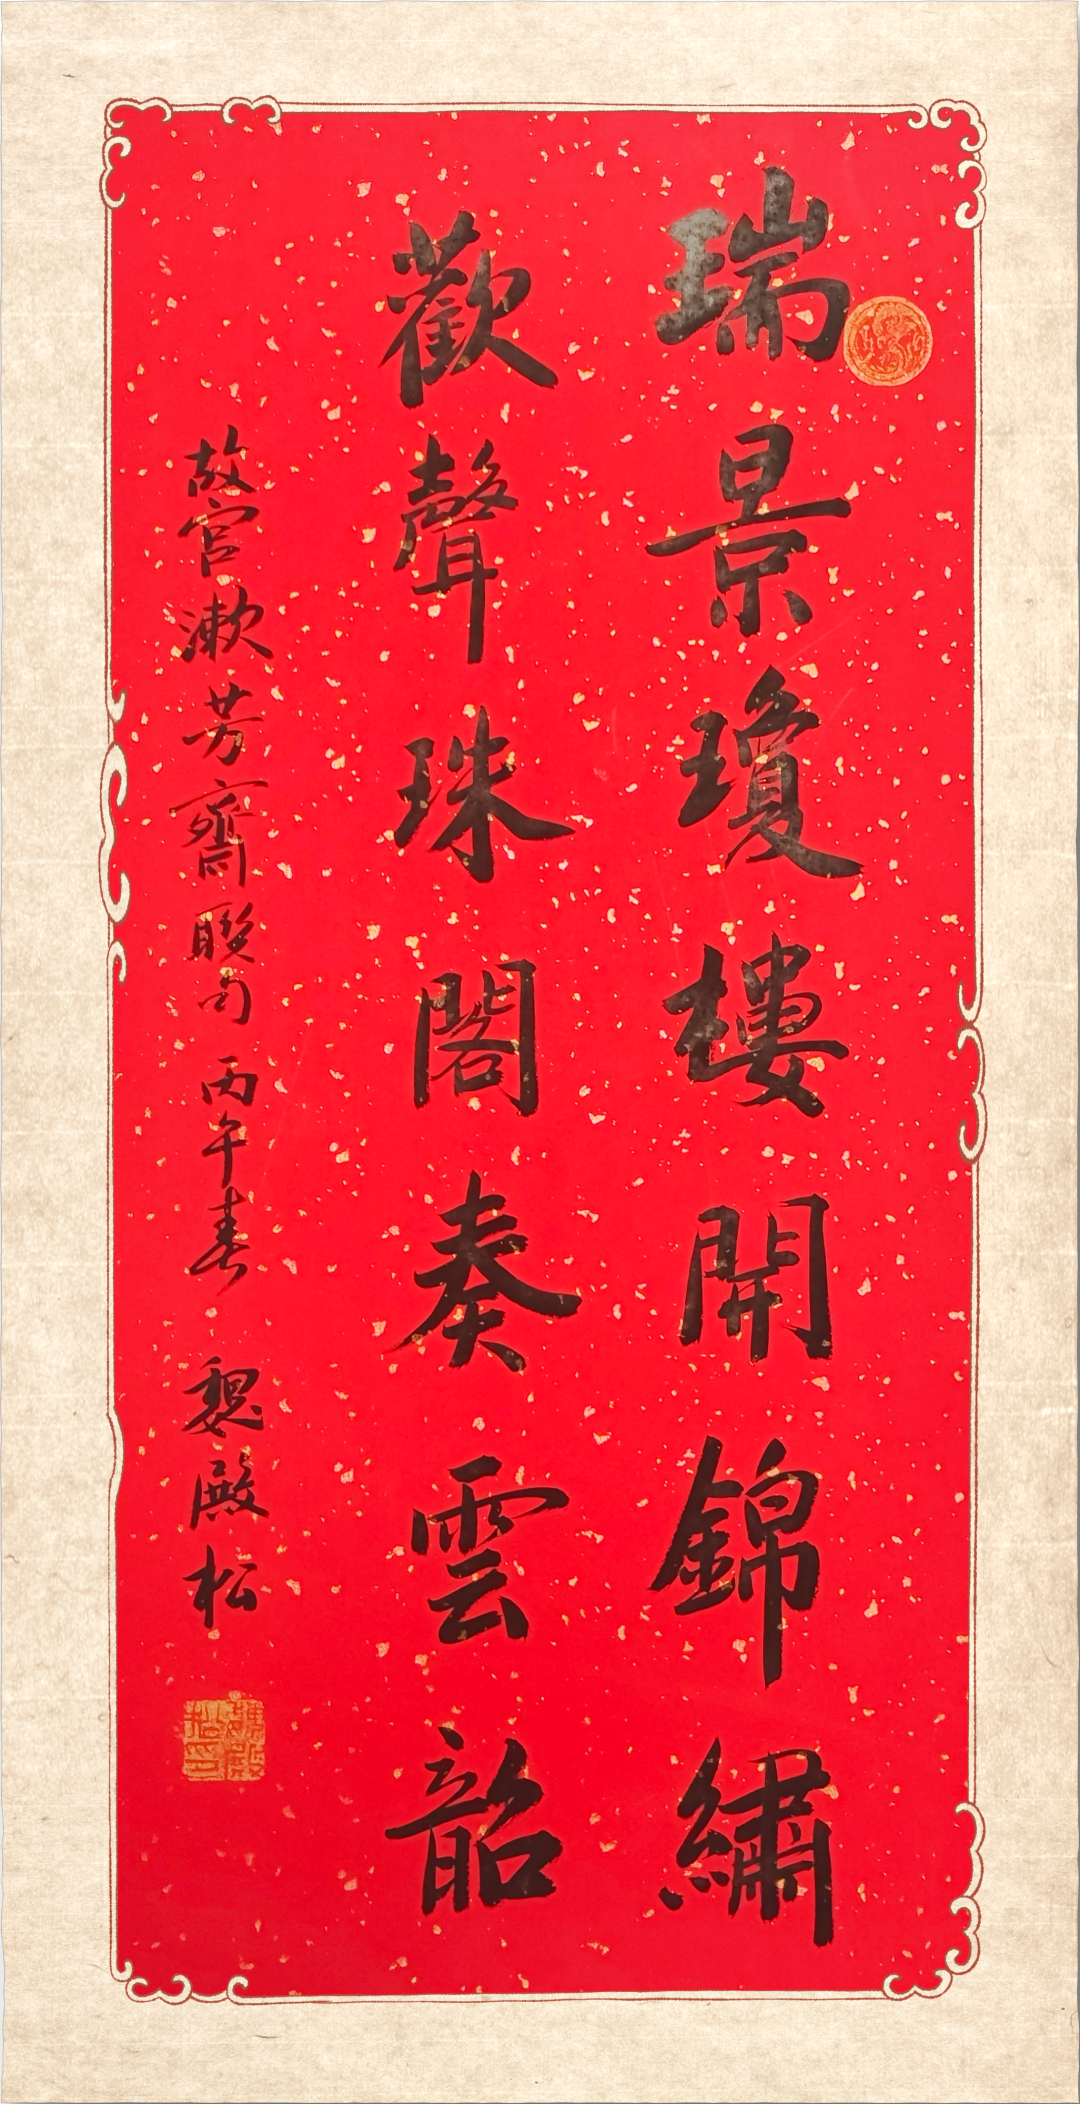 瑞景瓊樓開錦繡
歡聲珠閣奏雲韶
故宮漱芳齋聯句 丙午春 魏殿松